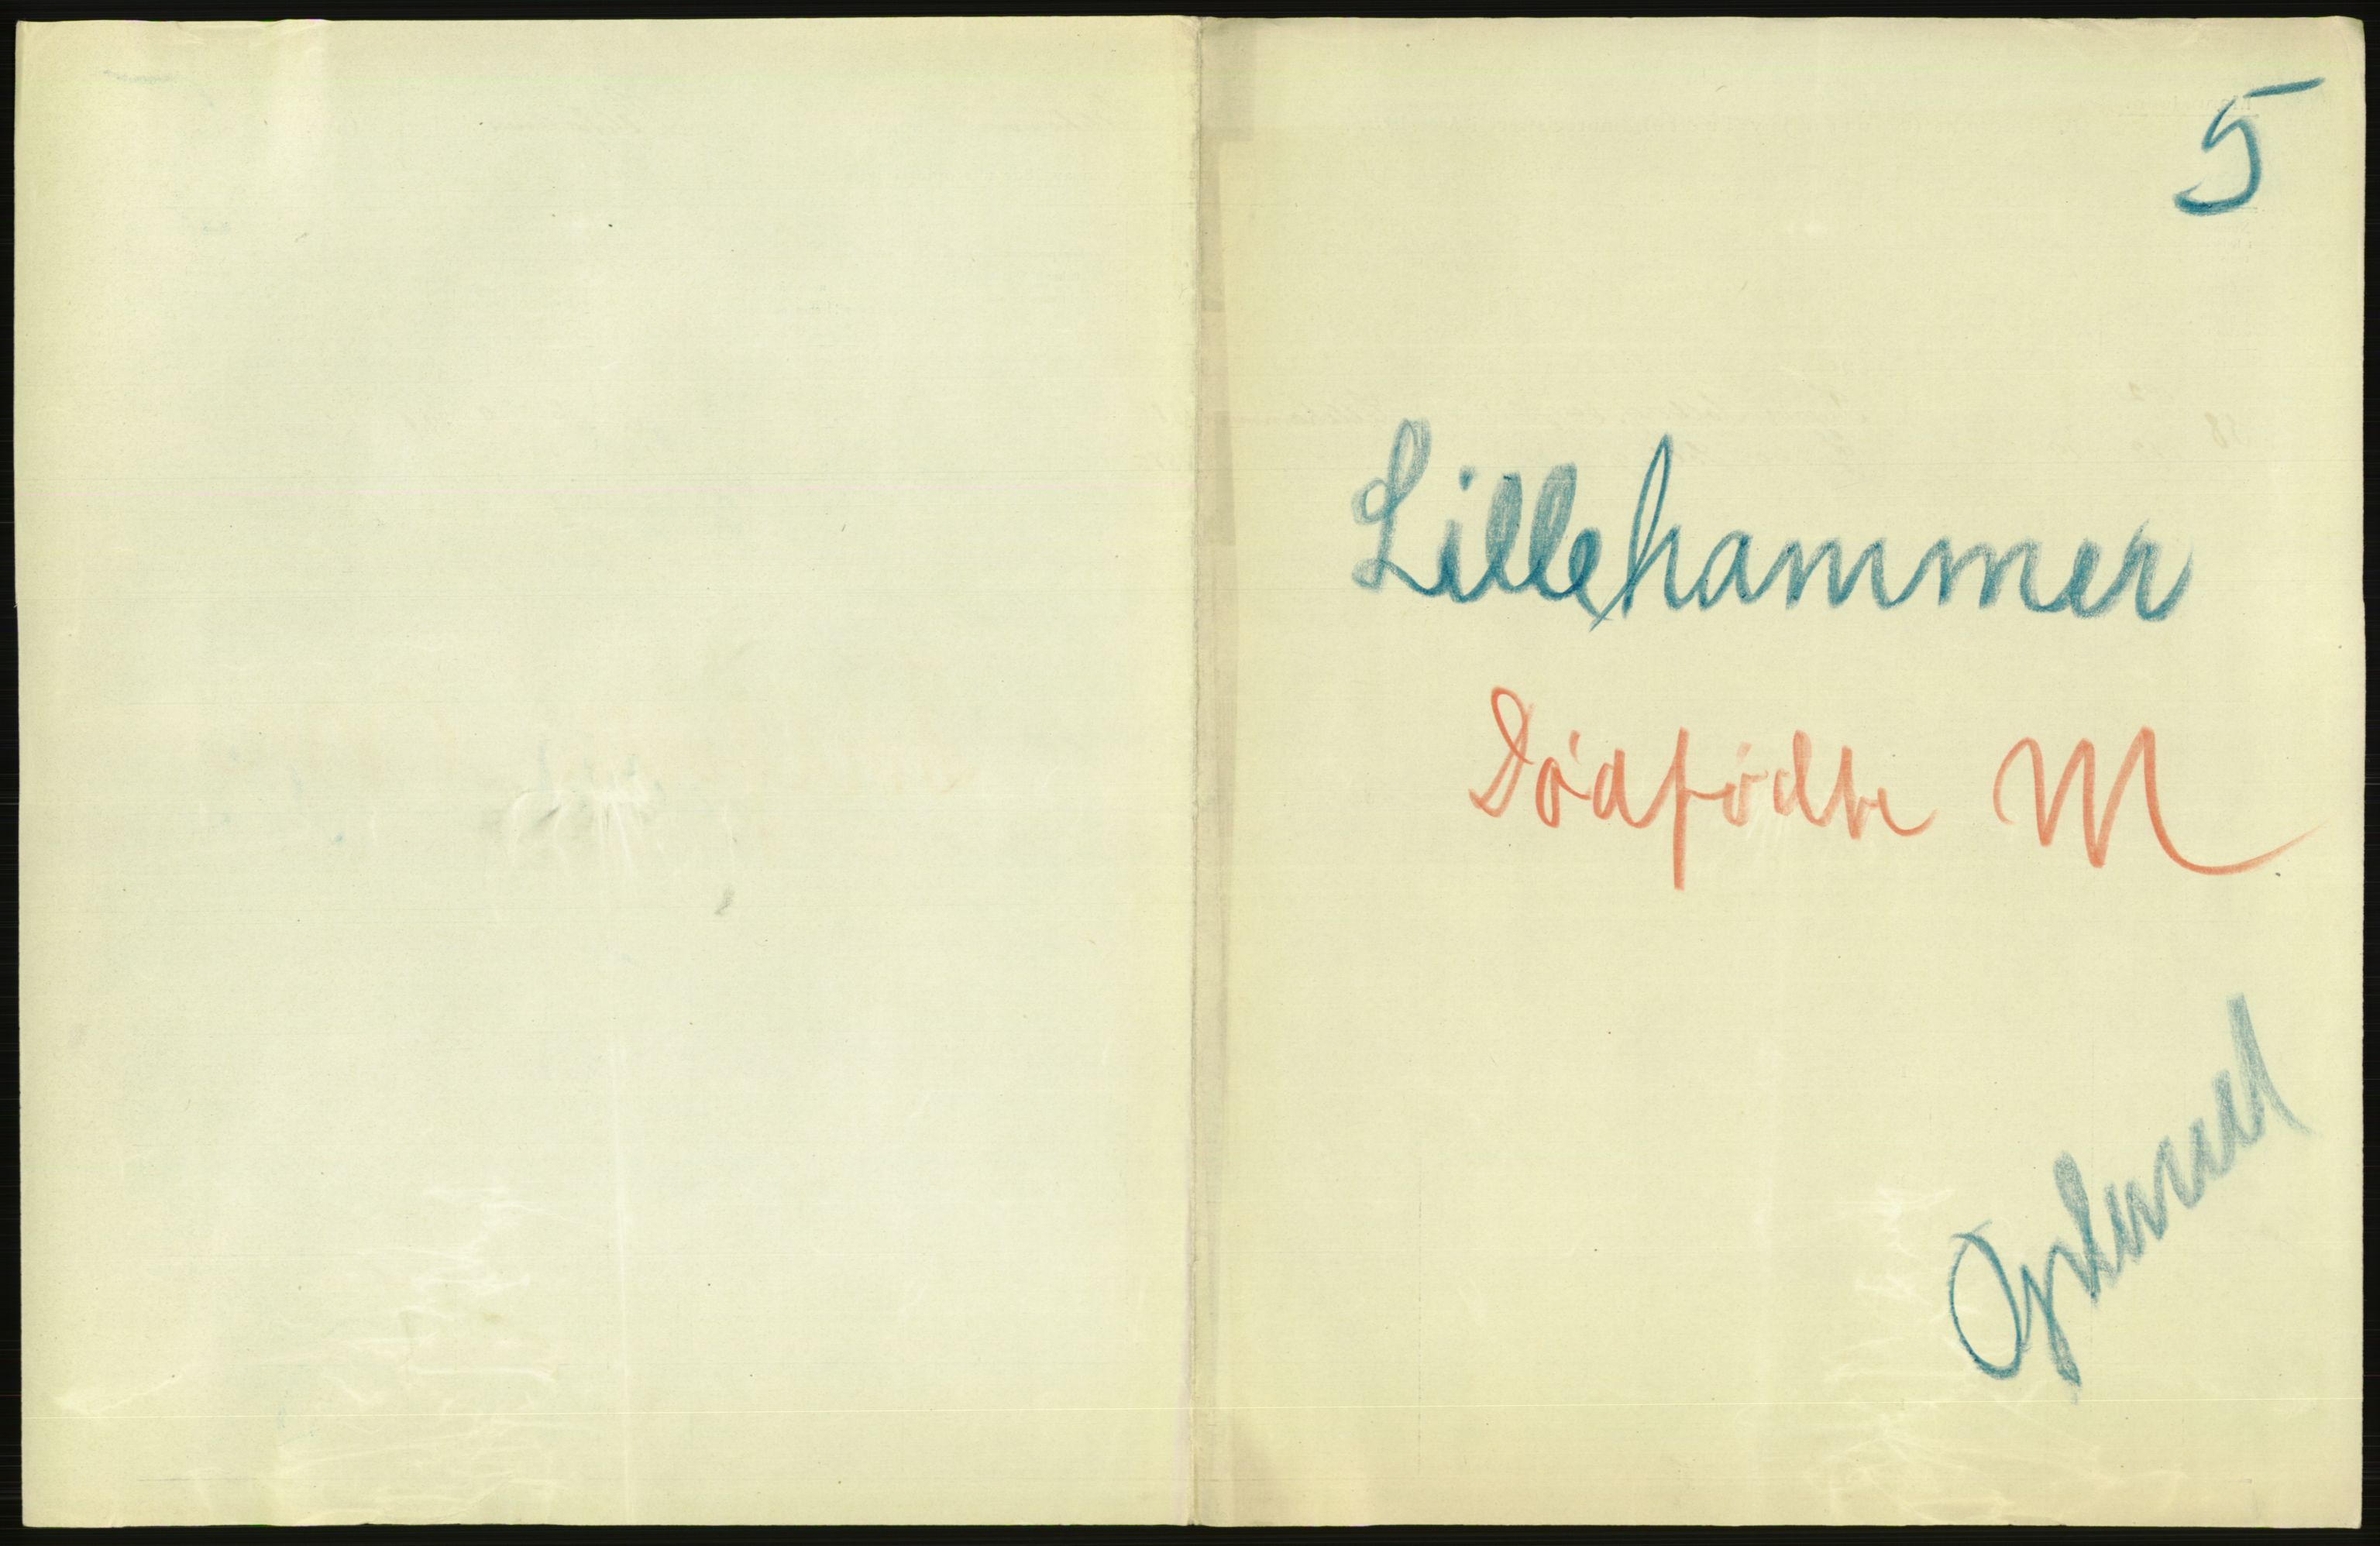 5
Lillehammer
Dødfødte M
Opland